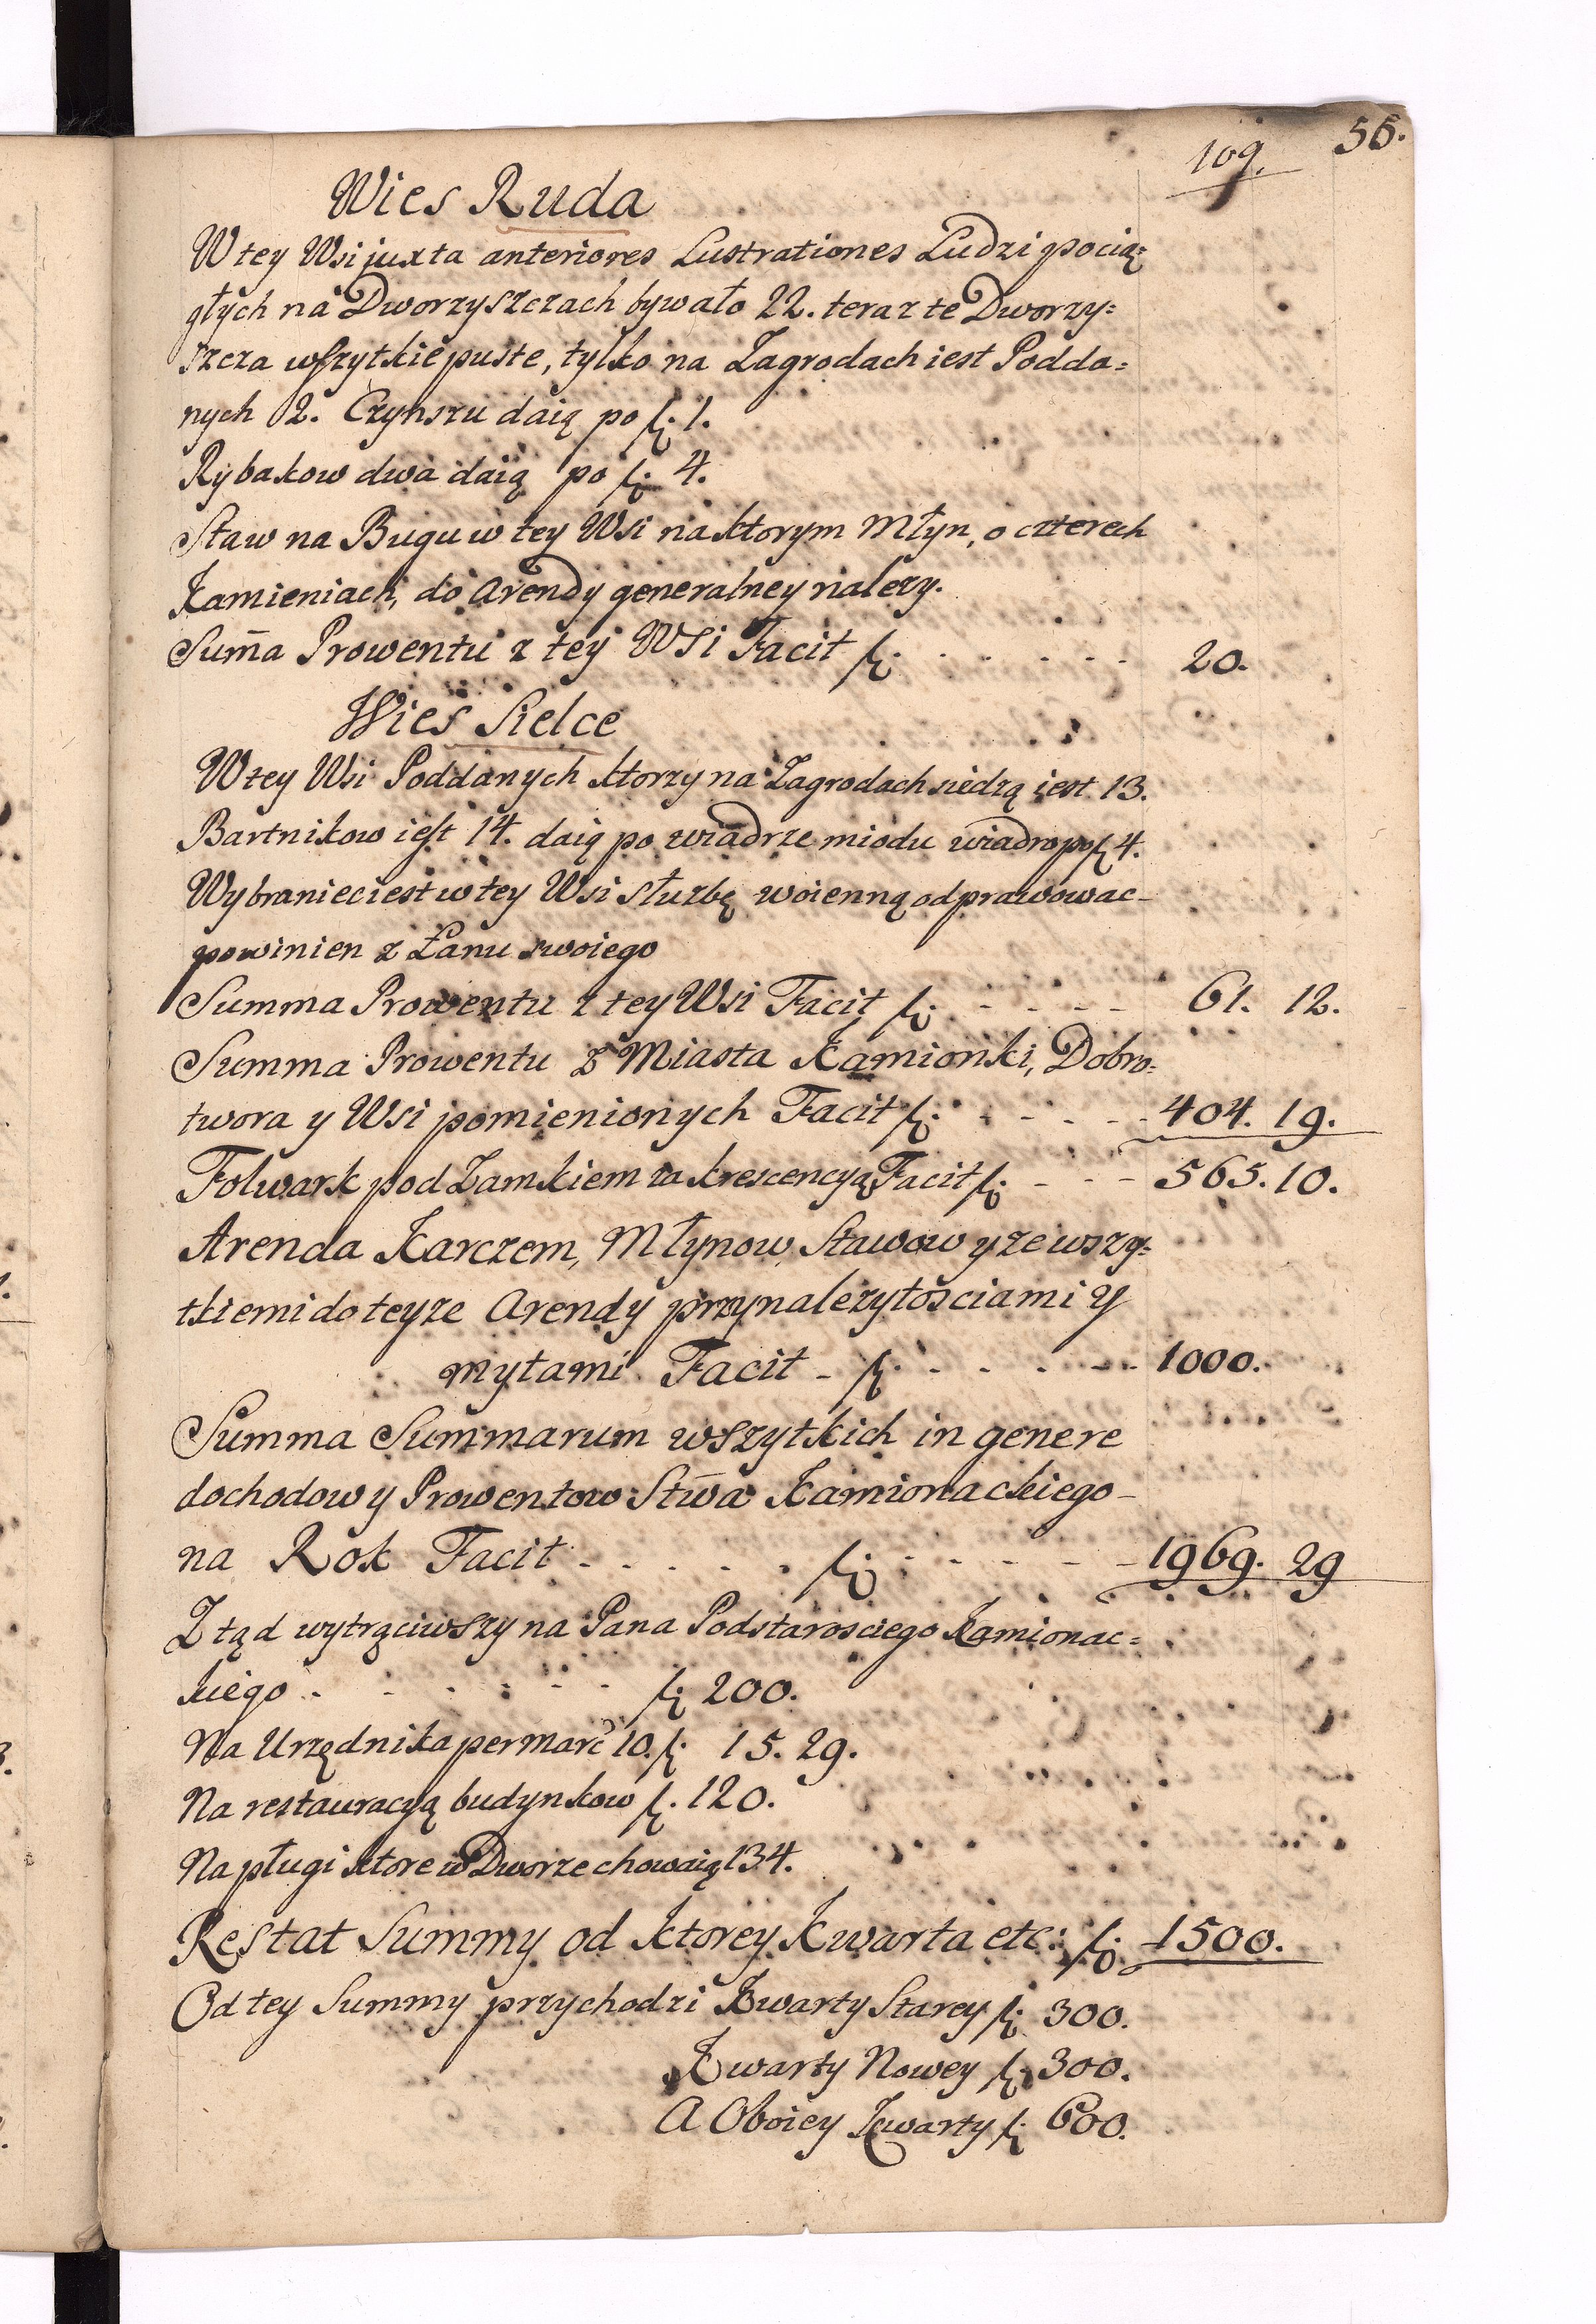 109. 55.
Wies Ruda
W tey Wsi juxta anteriores Lustrationes Ludzi pocią=
głych na Dworzyszczach bywało 22. teraz te Dworzy=
szcza wszytkie puste, tylko na Zagrodach iest Podda=
nych 2. Czynszu daią po fl. 1.
Rybakow dwa daią po fl. 4.
Staw na Bugu w tey Wsi na ktorym Młyn, o czterech
Kamieniach, do Arendy generalney nalezy.
Sum̄a Prowentu z tey Wsi Facit fl. - - - - - - 20.
Wies Sielce
W tey Wsi Poddanych ktorzy na Zagrodach siedzą iest 13.
Bartnikow iest 14. daią po wiadrze miodu wiadro po fl 4.
Wybraniec iest w tey Wsi służbę woienną odprawowac -
powinien z Łanu swoiego
Summa Prowentu z tey Wsi Facit fl. - - - - - 61. 12.
Summa Prowentu z Miasta Kamionki, Dobro=
twora y Wsi pomienionych Facit fl. - - - - - 404. 19.
Folwark pod Zamkiem za krescencyą Facit fl. - - - 565. 10.
Arenda Karczem, Młynow, Stawow y ze wszy=
tkiemi do teyze Arendy przynalezytosciami y
mytami Facit - fl. - - - - - 1000.
Summa Summarum wszytkich in genere
dochodow y Prowentow Stwa Kamionackiego -
na Rok Facit - - - - - fl. - - - - - 1969. 29
Ztąd wytrąciwszy na Pana Podstarosciego Kamionac=
kiego - - - - - - - fl. 200.
Na Urzędnika per marc 10. fl. 15. 29.
Na restauracyą budynkow fl. 120.
Na pługi ktore w Dworze chowaią 134.
Restat Summy od ktorey Kwarta etc: fl. 1500.
Od tey Summy przychodzi Kwarty Starey fl. 300.
Kwarty Nowey fl. 300.
A Oboiey Kwarty fl. 600.